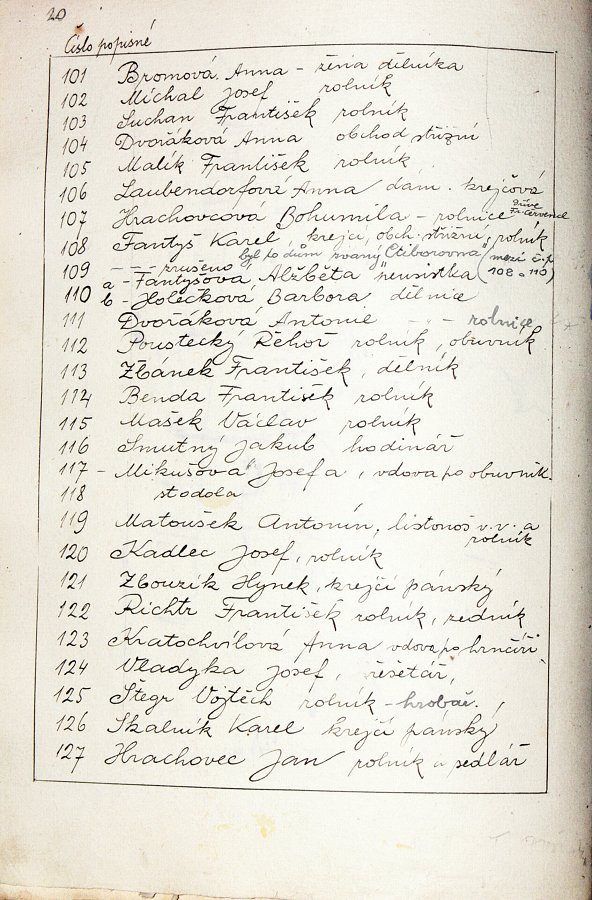 20
Číslo popisné
101 Bromová Anna - žena dělníka
102 Michal Josef rolník
103 Suchan František rolník
104 Dvořáková Anna obchod střižní
105 Malík František rolník
106 Laubendorfová Anna dám. krejčová
107 Hrachovcová Bohumila - rolnice dříve Fr. Červenel
108 Fantyš Karel, krejčí, obch. střižní, rolník
109 - - - zrušeno byl to dům zvaný "Ctiborovna" (mezi č.p. 108 a 110)
110 a - Fantyšová Alžběta neusistka
b - Holečková Barbora dělnice
111 Dvořáková Antonie - - - rolnice
112 Poustecký Řehoř rolník, obuvník
113 Zbánek František, dělník
114 Benda František rolník
115 Mašek Václav rolník
116 Smutný Jakub hodinář
117 - Mikušová Josefa, vdova po obuvník.
118 stodola
119 Matoušek Antonín, listonoš v.v. a rolník
120 Kadlec Josef, rolník
121 Zbouzik Hynek, krejčí pánský
122 Richtr František rolník, zedník
123 Kratochvílová Anna vdova po hrnčíři
124 Vladyka Josef, řešetář,
125 Štegr Vojtěch rolník - hrobař.
126 Skalník Karel krejčí pánský
127 Hrachovec Jan rolník a sedlář